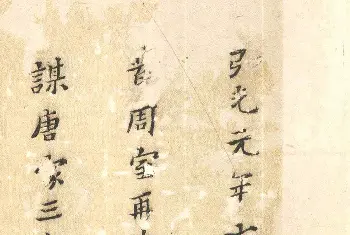 弘光元年
昔周室再
謀唐家三